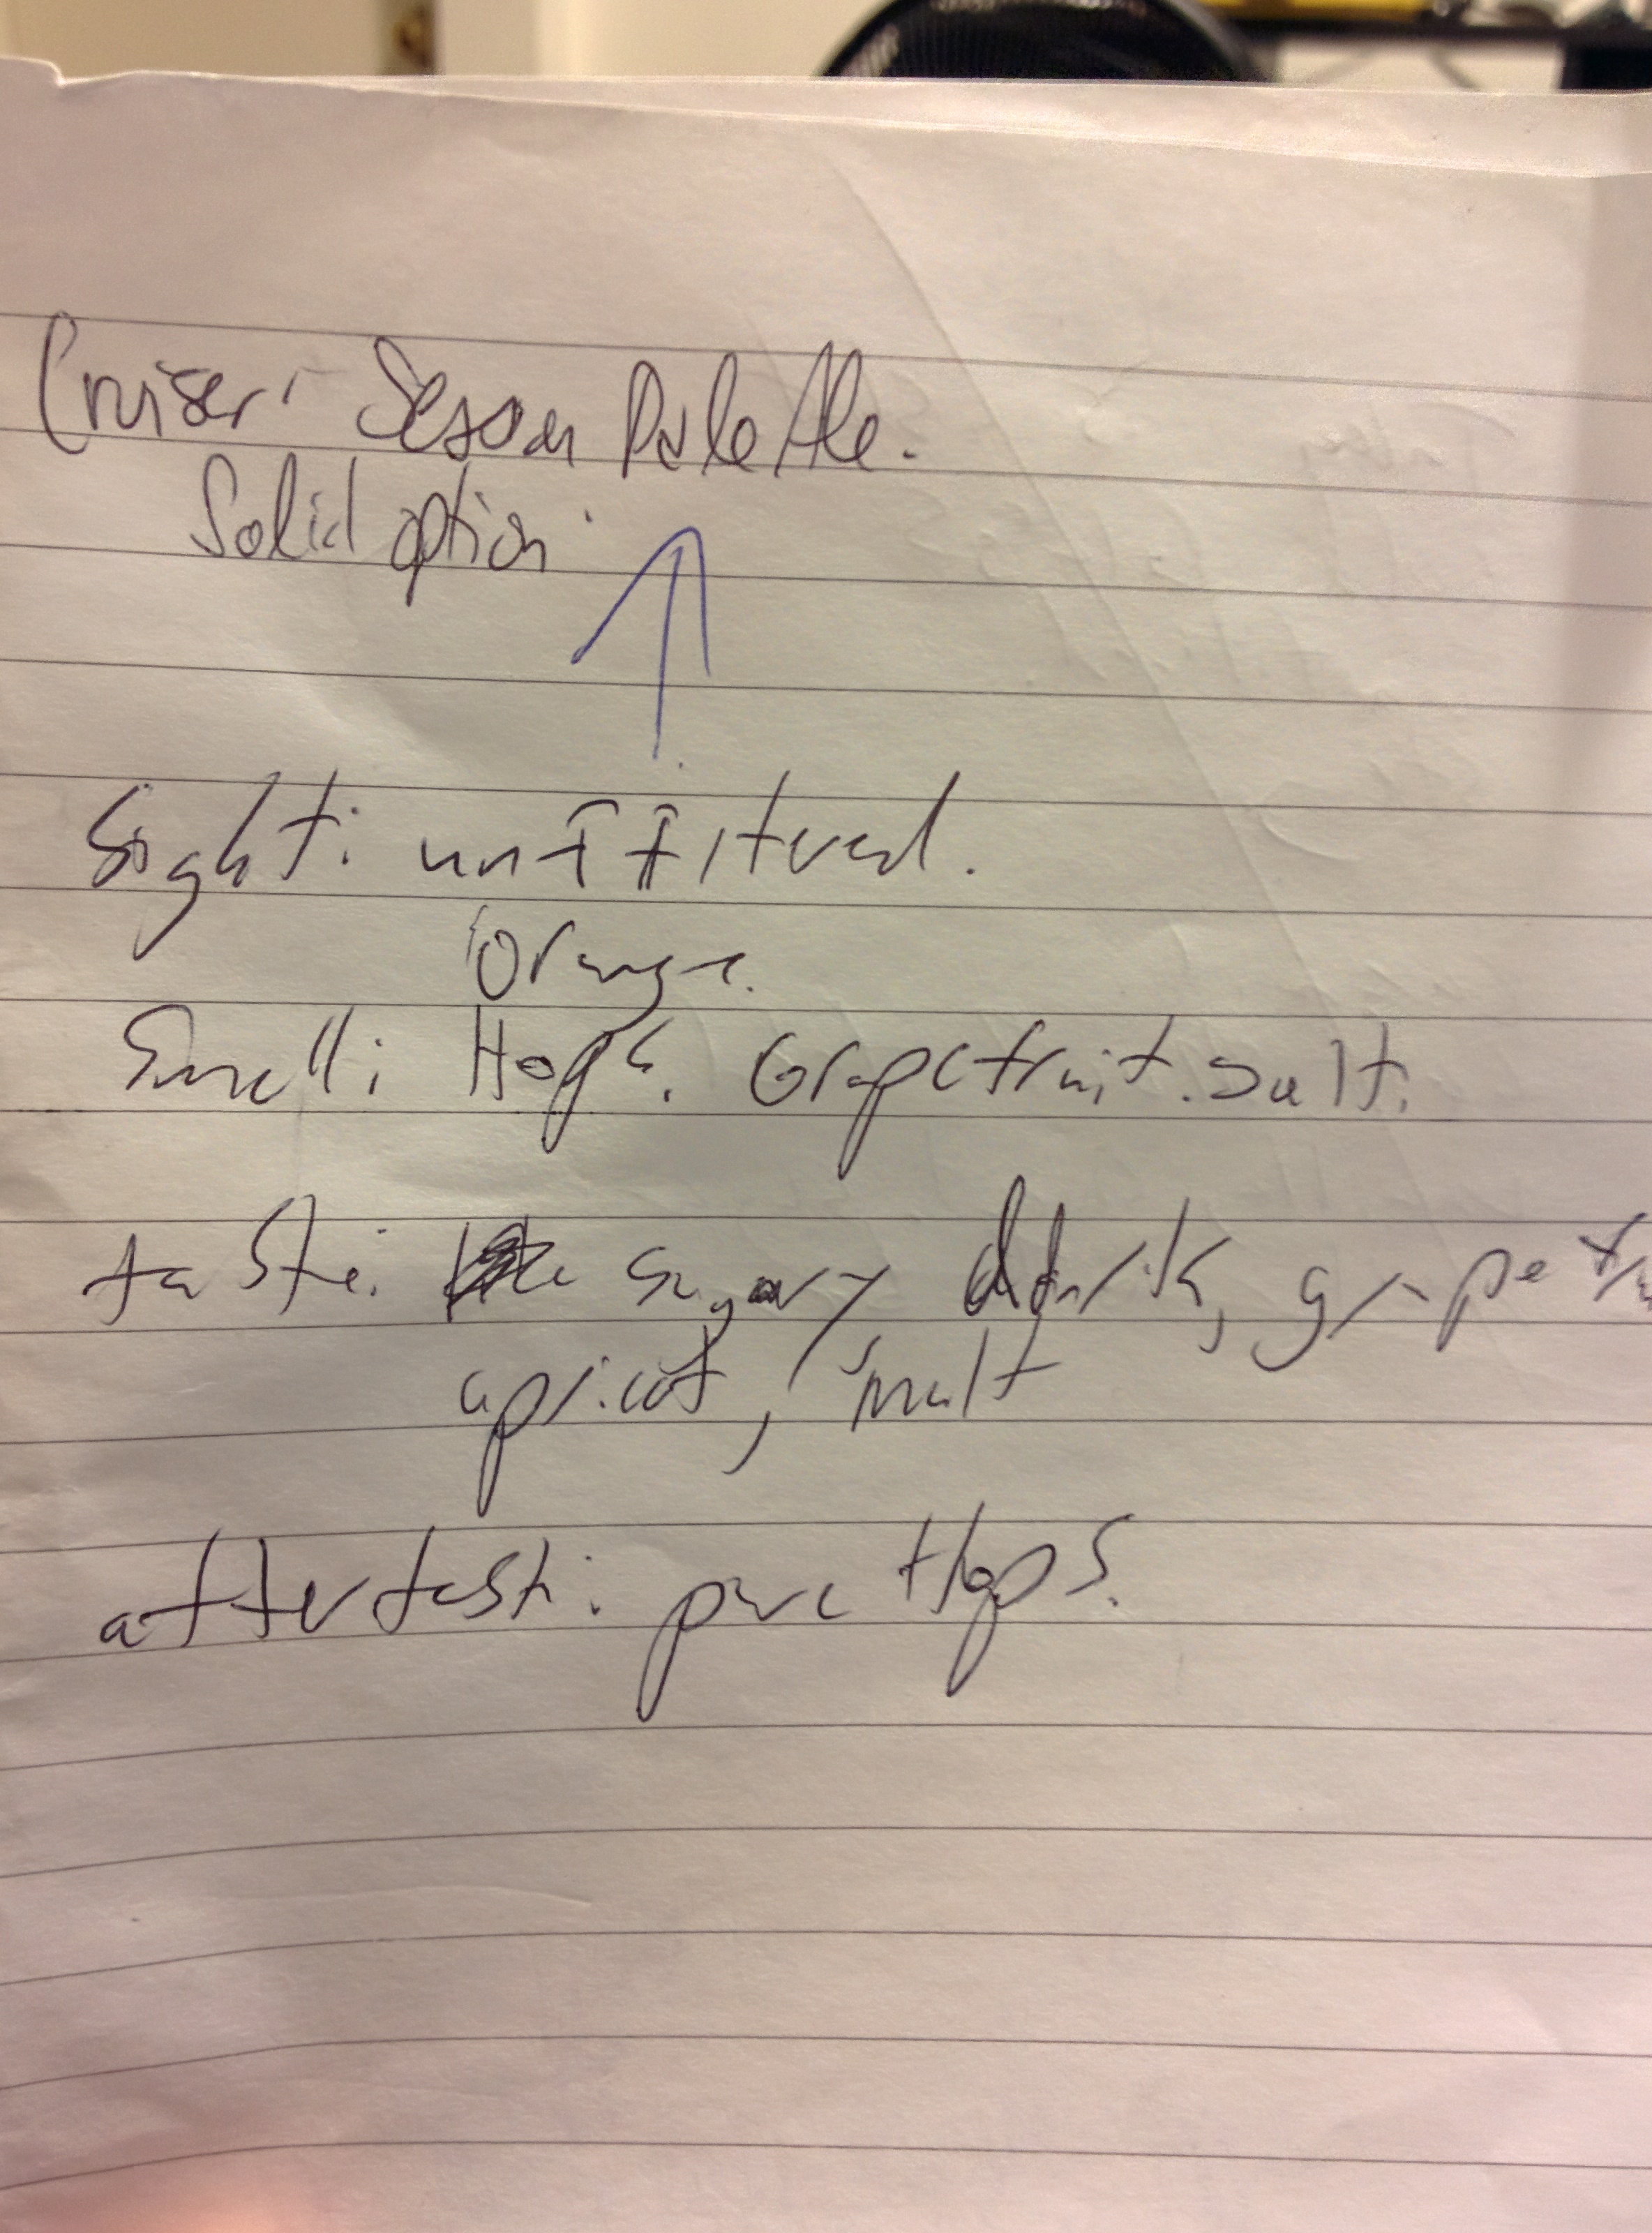 Cruiser: Session Pale Ale.
Solid option.
Sight: unfiltered.
Orange.
Smell: Hops. Grapefruit. salt.
taste: sugary drink, grapefru
apricot, malt
aftertaste: pure Hops.